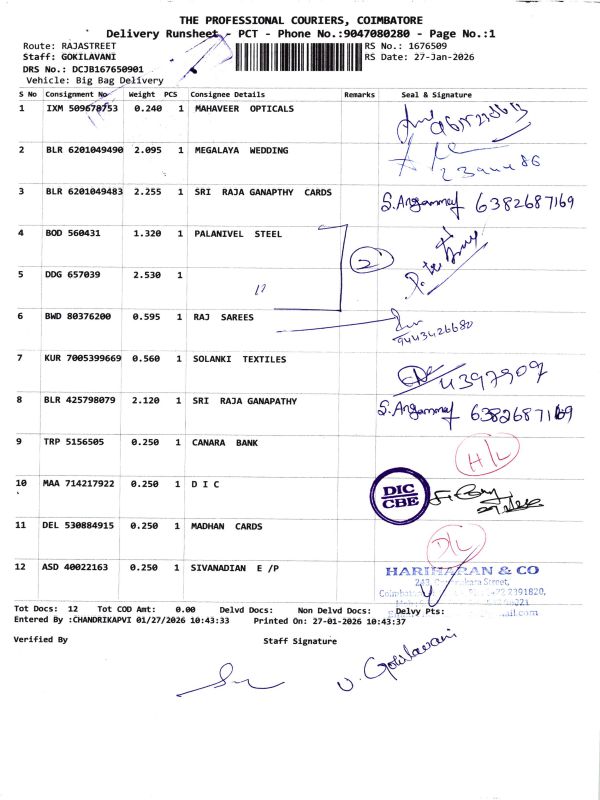 THE PROFESSIONAL COURIERS, COIMBATORE
Delivery Runsheet - PCT - Phone No.:9047080280 - Page No.:1
Route: RAJASTREET RS No.: 1676509
Staff: GOKILAVANI RS Date: 27-Jan-2026
DRS No.: DCJB167650901
Vehicle: Big Bag Delivery
S No Consignment No Weight PCS Consignee Details Remarks Seal & Signature
1 IXM 509678753 0.240 1 MAHAVEER OPTICALS
2 BLR 6201049490 2.095 1 MEGALAYA WEDDING
3 BLR 6201049483 2.255 1 SRI RAJA GANAPTHY CARDS S.Angammay 6382687169
4 BOD 560431 1.320 1 PALANIVEL STEEL
2
5 DDG 657039 2.530 1 "
6 BWD 80376200 0.595 1 RAJ SAREES 9443426680
7 KUR 7005399669 0.560 1 SOLANKI TEXTILES 4397907
8 BLR 425798079 2.120 1 SRI RAJA GANAPATHY S.Angammay 6382687169
9 TRP 5156505 0.250 1 CANARA BANK H/L
10 MAA 714217922 0.250 1 D I C DIC CBE
11 DEL 530884915 0.250 1 MADHAN CARDS D/L
12 ASD 40022163 0.250 1 SIVANADIAN E /P HARIHARAN & CO
Street,
2391820,
Tot Docs: 12 Tot COD Amt: 0.00 Delvd Docs: Non Delvd Docs: Delvy Pts:
Entered By :CHANDRIKAPVI 01/27/2026 10:43:33 Printed On: 27-01-2026 10:43:37
Verified By Staff Signature
V. Gokilavani